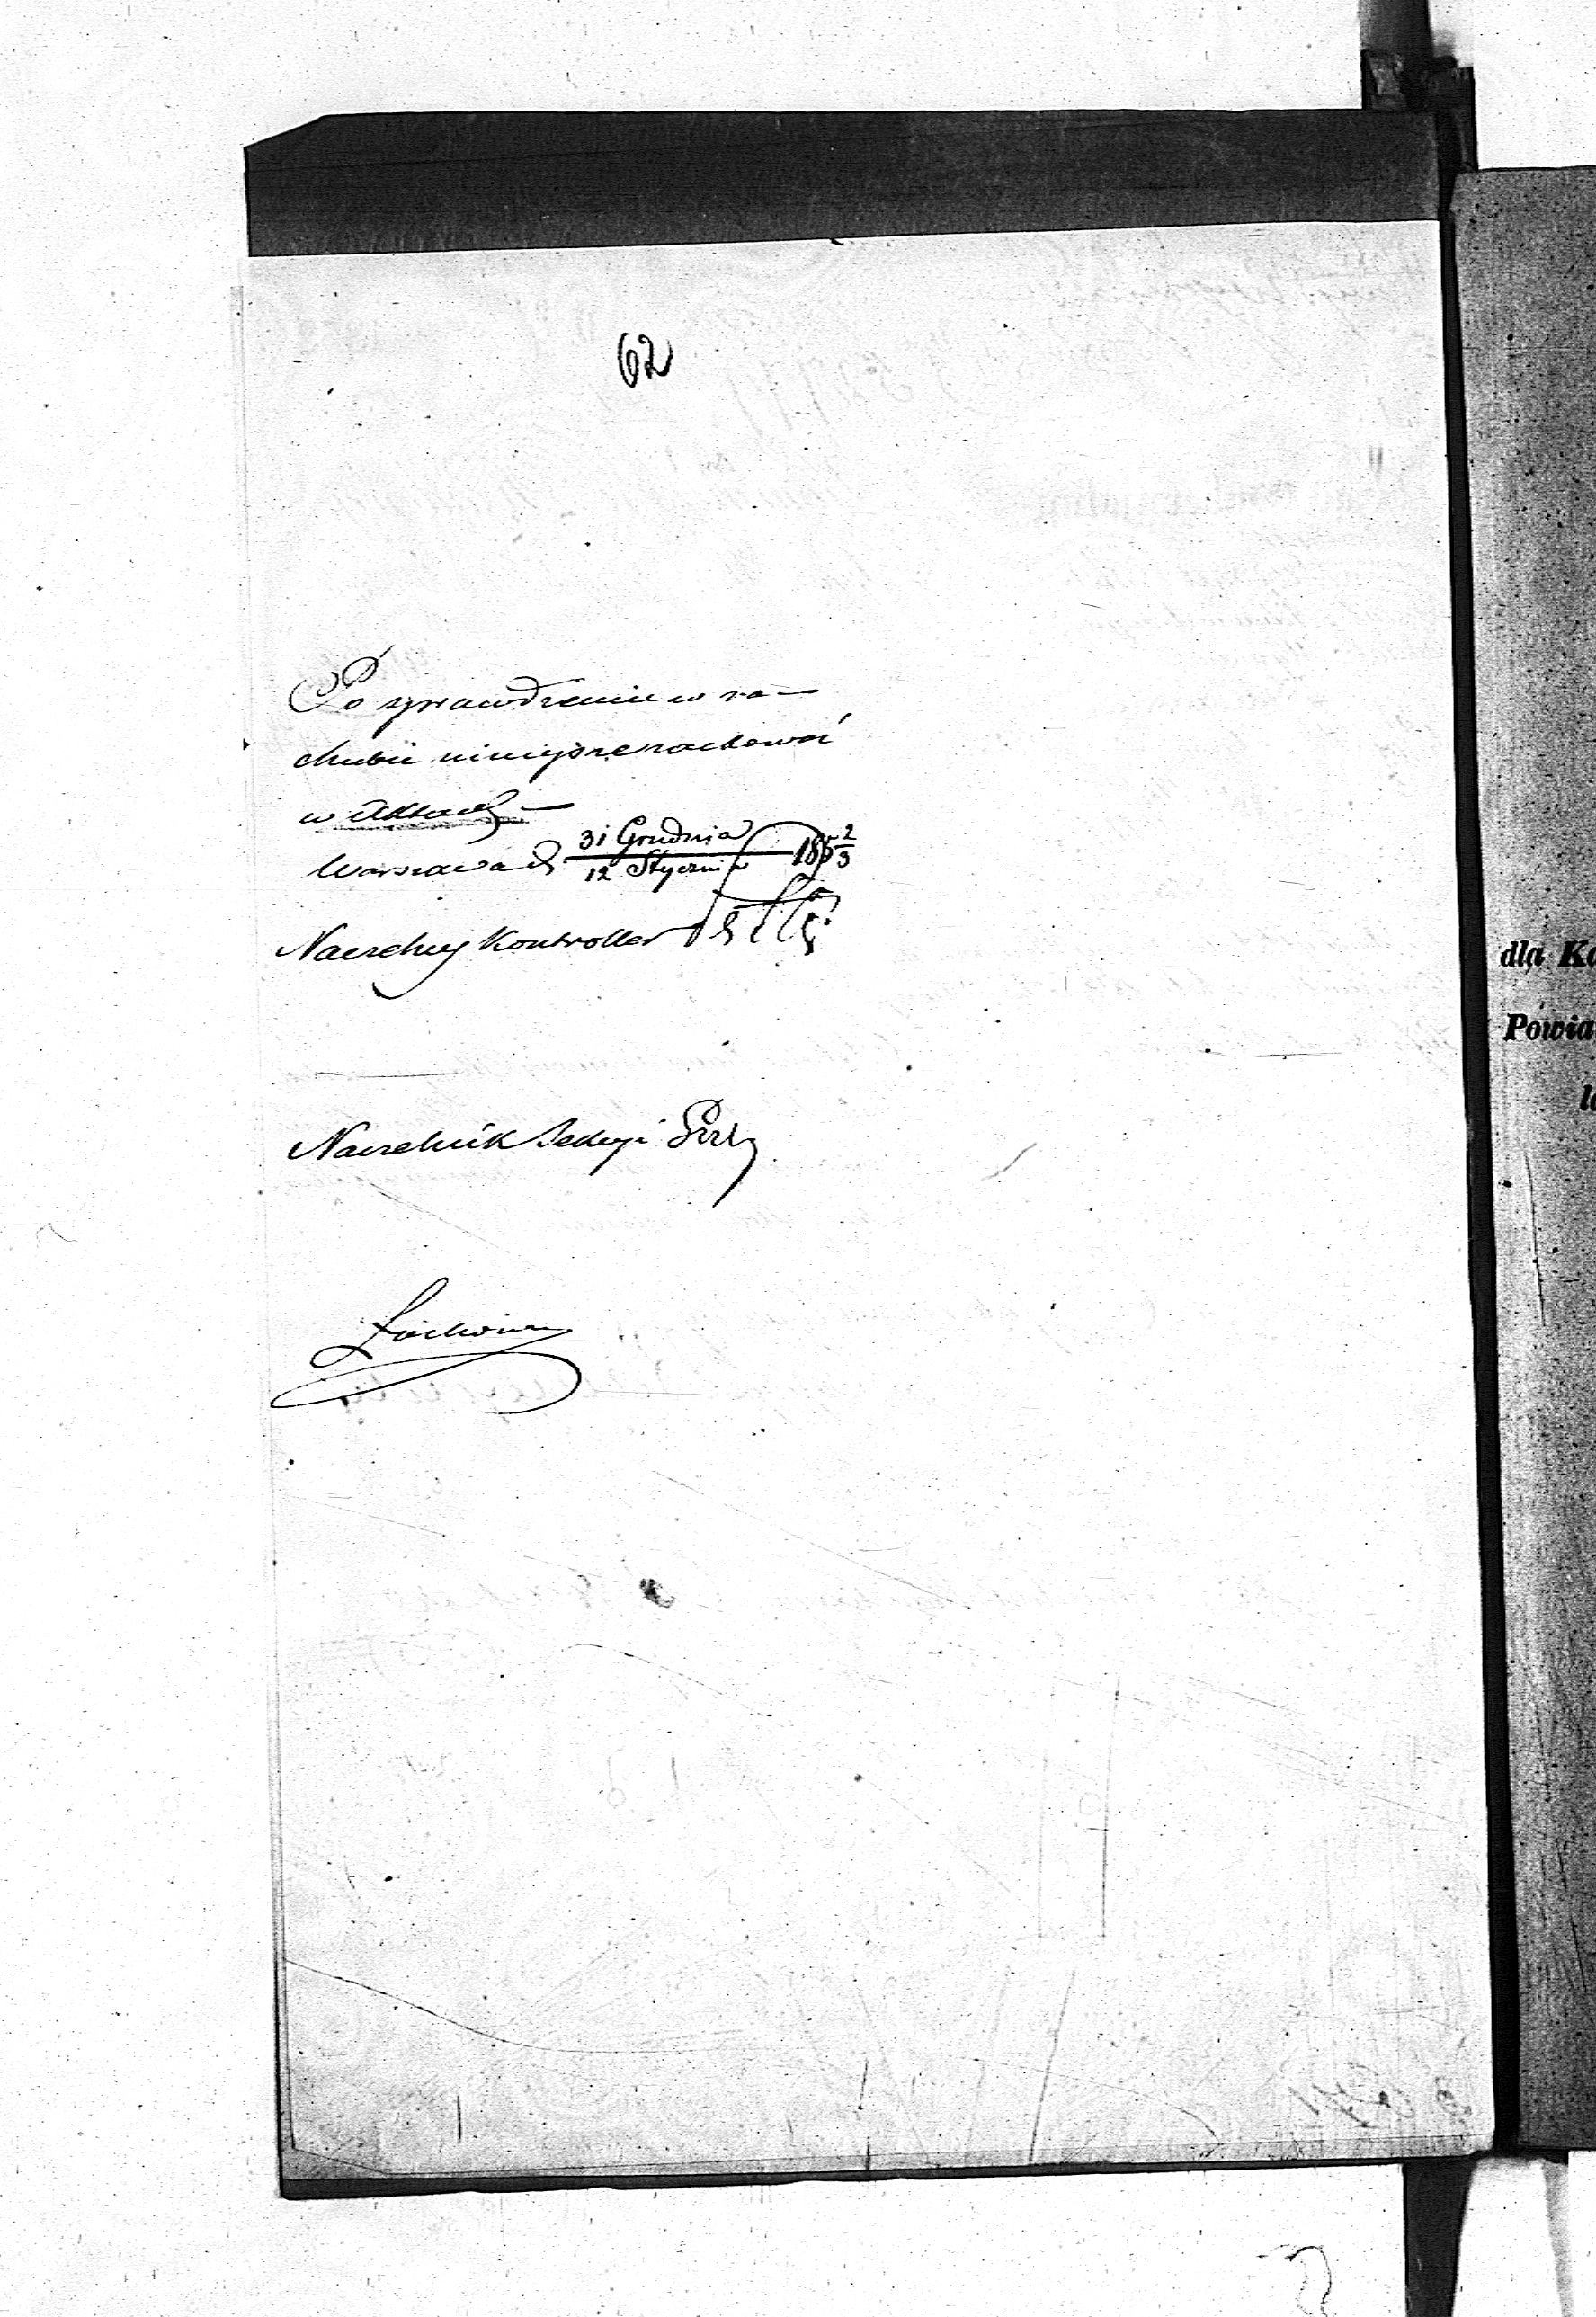 62
Po sprawdzeniu w ra-
chubie niniejsze zachować
w Aktach -
Warszawa d. 31 Grudnia / 12 Stycznia 185 2/3
Naczelny Kontroller
Naczelnik Sekcyi
dla Ko
Powia